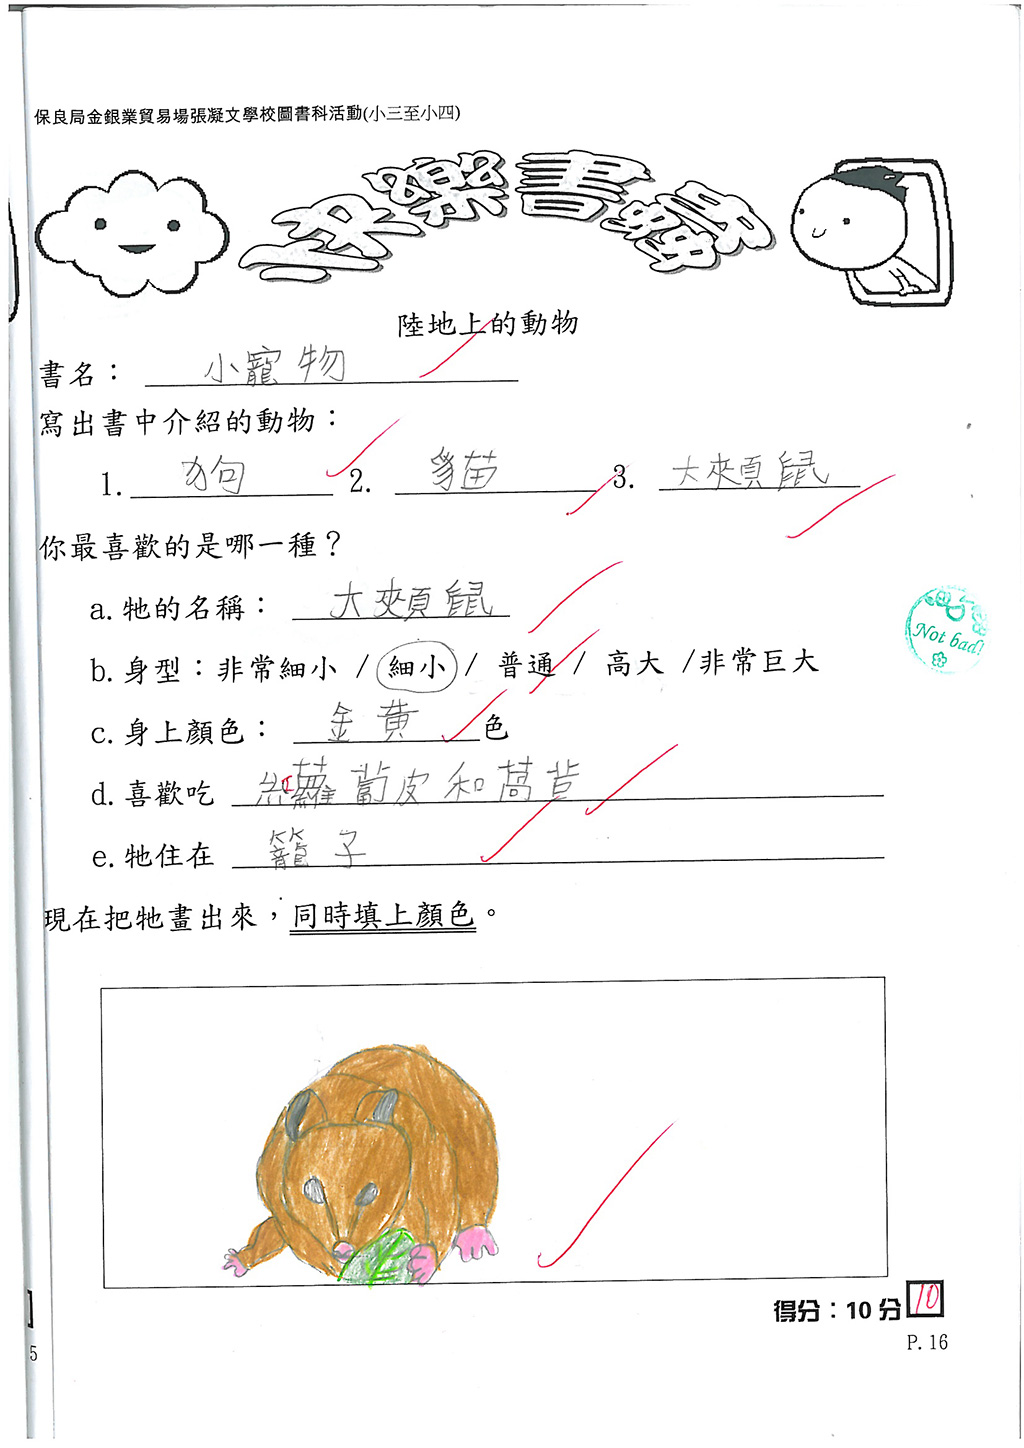 保良局金銀業貿易場張凝文學校圖書科活動(小三至小四)
快樂書蟲
陸地上的動物
書名： 小寵物
寫出書中介紹的動物：
1. 狗 2. 貓 3. 大夾頰鼠
你最喜歡的是哪一種？
a. 牠的名稱： 大頰鼠
b. 身型：非常細小 / 細小 / 普通 / 高大 /非常巨大
c. 身上顏色： 金黃 色
d. 喜歡吃 紅蘿蔔皮和萵苣
e. 牠住在 籠子
Not bad!
現在把牠畫出來，同時填上顏色。
得分：10 分 10
P. 16
5